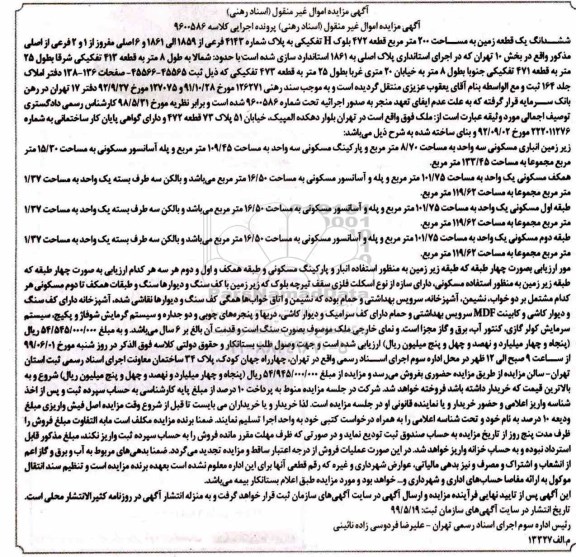 آگهی مزایده اموال غیر منقول (اسناد رهنی)
آگهی مزایده اموال غیر منقول (اسناد رهنی) پرونده اجرایی کلاسه ۹۶۰۰۵۸۶
ششدانگ یک قطعه زمین به مساحت ۲۰۰ متر مربع قطعه ۴۷۲ بلوک H تفکیکی به پلاک شماره ۴۱۴۳ فرعی از ۱۸۵۹ الی ۱۸۶۱ و ۶ اصلی مفروز از ۱ و ۲ فرعی از اصلی
مذکور واقع در بخش ۱۰ تهران که در اجرای استانداری پلاک اصلی به ۱۸۶۱ استاندارد سازی شده است با حدود: شمالا به طول ۸ متر به قطعه ۴۱۳ تفکیکی شرقا بطول ۲۵
متر به قطعه ۴۷۱ تفکیکی جنوبا بطول ۸ متر به خیابان ۲۰ متری غربا بطول ۲۵ متر به قطعه ۴۷۳ تفکیکی که ذیل ثبت ۴۵۵۶۵-۴۵۵۶۶ صفحات ۱۳۶-۱۳۸ دفتر املاک
جلد ۱۶۴ ثبت و مع الواسطه بنام آقای یعقوب عزیزی منتقل گردیده است و به موجب سند رهنی ۱۲۶۲۷۱ مورخ ۹۱/۱۰/۲۸ و ۱۲۷۰۷۵ مورخ ۹۲/۹/۲۷ دفتر ۱۷ تهران در رهن
بانک سرمایه قرار گرفته که به علت عدم ایفای تعهد منجر به صدور اجرائیه تحت شماره ۹۶۰۰۵۸۶ شده است و برابر نظریه مورخ ۹۸/۵/۳۱ کارشناس رسمی دادگستری
توصیف اجمالی مورد وثیقه عبارت است از: ملک فوق واقع است در تهران بلوار دهکده المپیک، خیابان ۵۱ پلاک ۷۳ قطعه ۴۷۲ و دارای گواهی پایان کار ساختمانی به شماره
۲۲۲۰۱۱۲۷۶ مورخ ۹۲/۰۹/۰۲ و بنای ساخته شده به شرح ذیل می‌باشد:
زیر زمین انباری مسکونی سه واحد به مساحت ۸/۷۰ متر مربع و پارکینگ مسکونی سه واحد به مساحت ۱۰۹/۴۵ متر مربع و پله آسانسور مسکونی به مساحت ۱۵/۳۰ متر
مربع مجموعا به مساحت ۱۳۳/۴۵ متر مربع.
همکف مسکونی یک واحد به مساحت ۱۰۱/۷۵ متر مربع و پله و آسانسور مسکونی به مساحت ۱۶/۵۰ متر مربع می‌باشد و بالکن سه طرف بسته یک واحد به مساحت ۱/۳۷
متر مربع مجموعا به مساحت ۱۱۹/۶۲ متر مربع.
طبقه اول مسکونی یک واحد به مساحت ۱۰۱/۷۵ متر مربع و پله و آسانسور مسکونی به مساحت ۱۶/۵۰ متر مربع می‌باشد و بالکن سه طرف بسته یک واحد به مساحت ۱/۳۷
متر مربع مجموعا به مساحت ۱۱۹/۶۲ متر مربع.
طبقه دوم مسکونی یک واحد به مساحت ۱۰۱/۷۵ متر مربع و پله و آسانسور مسکونی به مساحت ۱۶/۵۰ متر مربع می‌باشد و بالکن سه طرف بسته یک واحد به مساحت ۱/۳۷
متر مربع مجموعا به مساحت ۱۱۹/۶۲ متر مربع.
مور ارزیابی بصورت چهار طبقه که طبقه زیر زمین به منظور استفاده انبار و پارکینگ مسکونی و طبقه همکف و اول و دوم هر سه هر کدام ارزیابی به صورت چهار طبقه که
طبقه زیر زمین به منظور استفاده مسکونی، دارای سازه از نوع اسکلت فلزی سقف تیرچه بلوک که زیر زمین با کف سنگ و دیوارها سنگ و طبقات همکف تا دوم مسکونی هر
کدام مشتمل بر دو خواب، نشیمن، آشپزخانه، سرویس بهداشتی و حمام بوده که نشیمن و اتاق خواب‌ها همگی کف سنگ و دیوارها نقاشی شده، آشپزخانه دارای کف سنگ
و دیوار کاشی و کابینت MDF سرویس بهداشتی و حمام دارای کف سرامیک و دیوار کاشی، دربها و پنجره‌های چوبی و دو جداره و سیستم گرمایش شوفاژ و پکیج، سیستم
سرمایش کولر گازی، کنتور آب، برق و گاز مجزا است. و نمای خارجی ملک موصوف بصورت سنگ است و قدمت آن بالغ بر ۶ سال می‌باشد. و به مبلغ ۵۴/۵۴۵/۰۰۰/۰۰۰ ریال
(پنجاه و چهار میلیارد و نهصد و چهل و پنج میلیون ریال) ارزیابی شده است و جهت وصول طلب بستانکار و حقوق دولتی کلاسه فوق الذکر در روز شنبه مورخ ۹۹/۰۶/۰۱
از ساعت ۹ صبح الی ۱۲ ظهر در محل اداره سوم اجرای اسناد رسمی واقع در تهران، چهارراه جهان کودک، پلاک ۳۴ ساختمان معاونت اجرای اسناد رسمی ثبت استان
تهران- سالن مزایده از طریق مزایده حضوری بفروش می‌رسد و مزایده از مبلغ ۵۴/۹۴۵/۰۰۰/۰۰۰ ریال (پنجاه و چهار میلیارد و نهصد و چهل و پنج میلیون ریال) شروع و به
بالاترین قیمت که خریدار داشته باشد فروخته خواهد شد. شرکت در جلسه مزایده منوط به پرداخت ۱۰ درصد از مبلغ پایه کارشناسی به حساب سپرده ثبت و پس از اخذ
شناسه واریز اعلامی و حضور خریدار و یا نماینده قانونی او در جلسه مزایده است. لذا خریدار و یا خریداران می بایست تا قبل از شروع وقت مزایده اصل فیش واریزی مبلغ
ودیعه ۱۰ درصد به نام خود و تحت شناسه اعلامی را به همراه درخواست کتبی خود به واحد اجرا تسلیم نمایند. ضمنا برنده مزایده مکلف است مابه التفاوت مبلغ فروش را
ظرف مدت پنج روز از تاریخ مزایده به حساب صندوق ثبت تودیع نماید و در صورتی که ظرف مهلت مقرر مانده فروش را به حساب سپرده ثبت واریز نکند، مبلغ مذکور قابل
استرداد نبوده و به حساب خزانه واریز خواهد شد. در این صورت عملیات فروش از درجه اعتبار ساقط و مزایده تجدید می‌گردد. ضمنا بدهی‌های مربوط به آب و برق و گاز اعم
از انشعاب و اشتراک و مصرف و نیز بدهی مالیاتی، عوارض شهرداری و غیره که رقم قطعی آنها برای این اداره معلوم نشده است بعهده برنده مزایده است و تنظیم سند انتقال
موکول به ارائه مفاصا حساب‌های اداری و شهرداری و... خواهد بود و مورد مزایده طبق اعلام بستانکار بیمه می‌باشد.
این آگهی پس از تایید نهایی فرآینده مزایده و ارسال آگهی در سایت آگهی‌های سازمان ثبت قرار خواهد گرفت و به منزله انتشار آگهی در روزنامه کثیرالانتشار محلی است.
تاریخ انتشار در سایت آگهی‌های سازمان ثبت: ۹۹/۵/۱۹
رئیس اداره سوم اجرای اسناد رسمی تهران - علیرضا فردوسی زاده نائینی
م.الف ۱۳۳۲۷